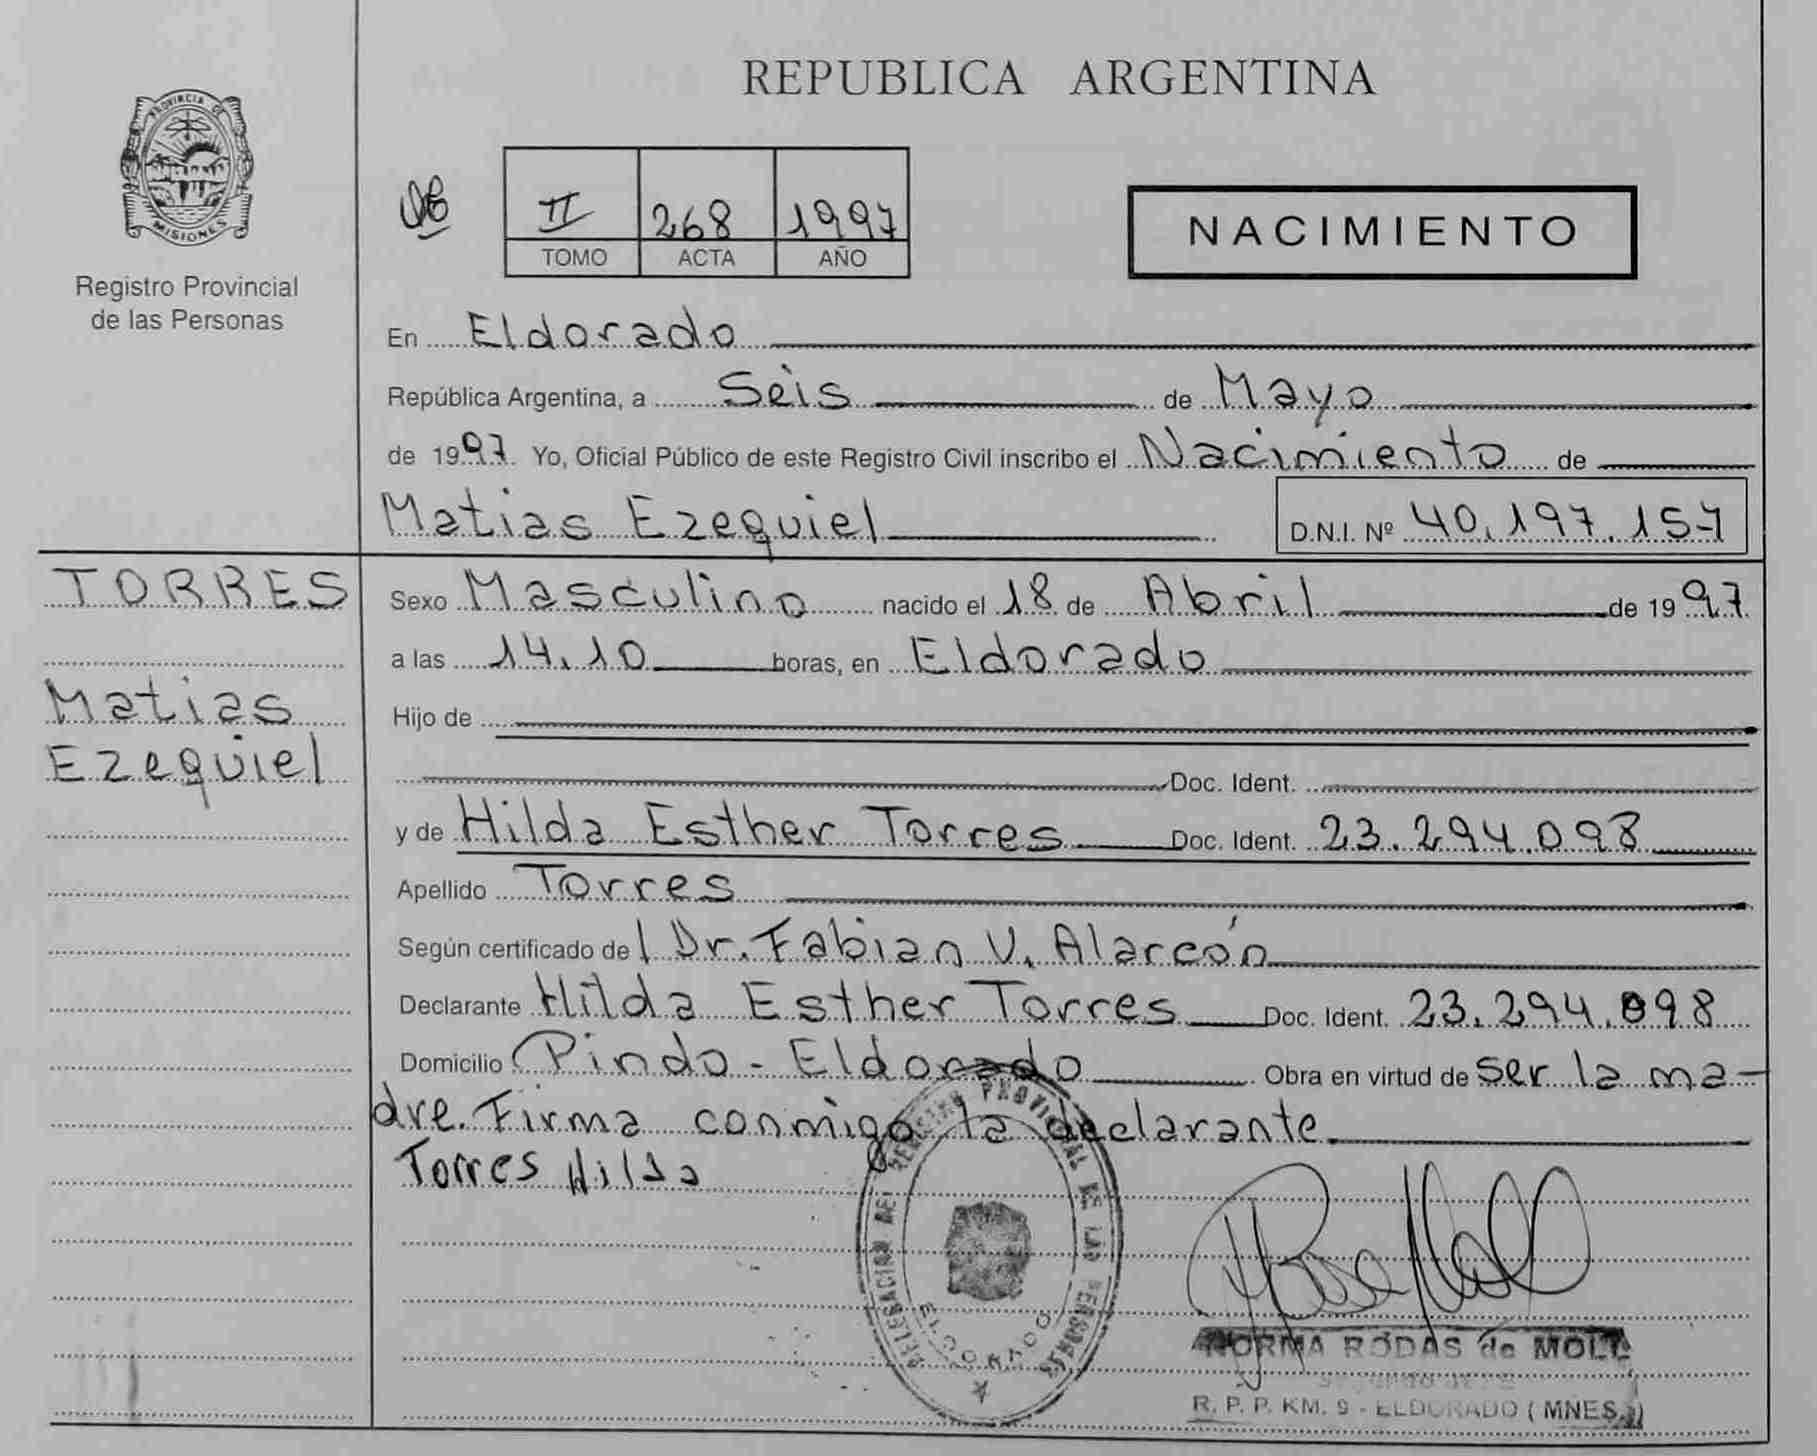 REPUBLICA ARGENTINA
PROVINCIA DE
MISIONES
Registro Provincial
de las Personas
II 268 1997
TOMO ACTA AÑO
NACIMIENTO
En Eldorado
República Argentina, a Seis de Mayo
de 1997. Yo, Oficial Público de este Registro Civil inscribo el Nacimiento de
Matias Ezequiel D.N.I. Nº 40.197.157
TORRES
Matias
Ezequiel
Sexo Masculino nacido el 18 de Abril de 1997
a las 14.10 horas, en Eldorado
Hijo de
Doc. Ident.
y de Hilda Esther Torres Doc. Ident. 23.294.098
Apellido Torres
Según certificado del Dr. Fabian V. Alarcón
Declarante Hilda Esther Torres Doc. Ident. 23.294.098
Domicilio Pindo - Eldorado Obra en virtud de ser la ma-
dre. Firma conmigo la declarante
Torres Hilda
DELEGACION DEL REGISTRO PROVINCIAL DE LAS PERSONAS
ELDORADO
NORMA RODAS de MOLL
R. P. P. KM. 9 - ELDORADO ( MNES. )